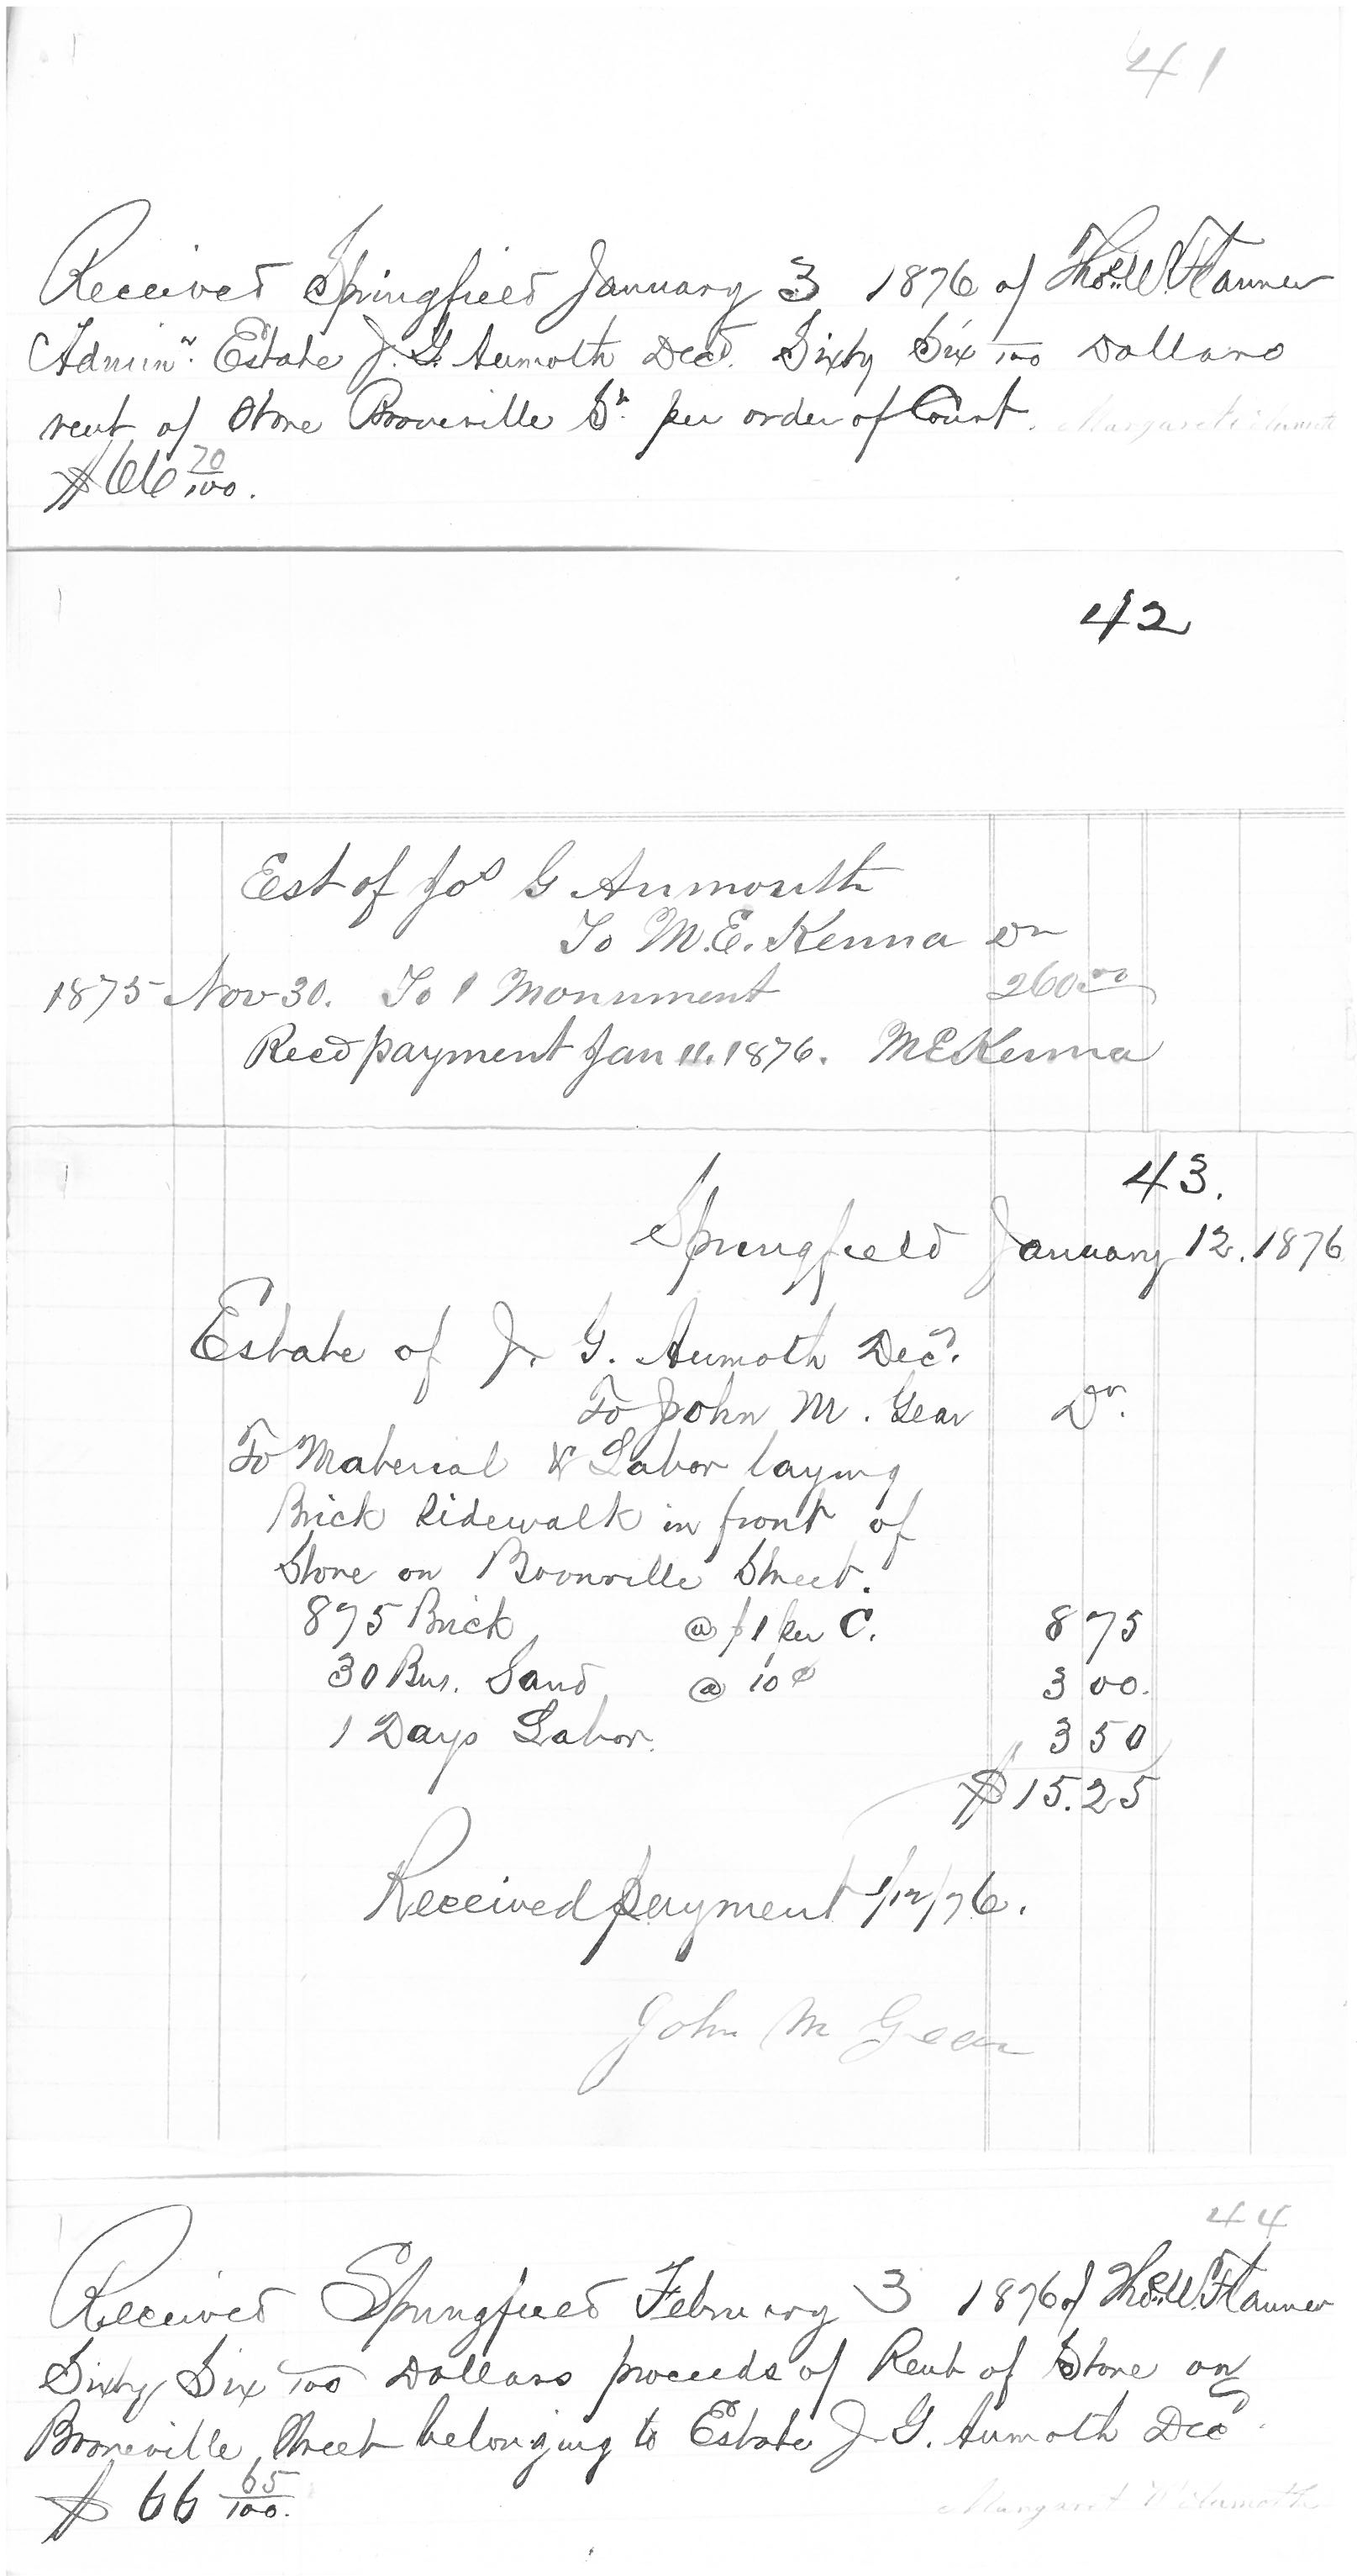 41
Received Springfield January 3 1876 of Thos. W. Flanner
Adminr. Estate J. G. Aumoth Decd. Sixty Six /100 Dollars
rent of Store Booneville St. per order of Court. Margaret Aumoth
$66 70/100.
42
Est of Jos G Aumouth
To M.E. Kenna Dr
1875 Nov 30. To 1 Monument 260.00
Recd payment Jan 11. 1876. M E Kenna
43.
Springfield January 12. 1876
Estate of J. G. Aumoth Decd.
To John M. Gear Dr.
To Material & Labor laying
Brick Sidewalk in front of
Store on Boonville Street.
875 Brick @ $1 per C. 8 75
30 Bus. Sand @ 10¢ 3 00.
1 Days Labor. 3 50
$15.25
Received payment 1/12/76.
John M Gear
44
Received Springfield February 3 1876 of Thos. W. Flanner
Sixty Six /100 Dollars proceeds of Rent of Store on
Booneville Street belonging to Estate J. G. Aumoth Decd.
$66 65/100.
Margaret Aumoth